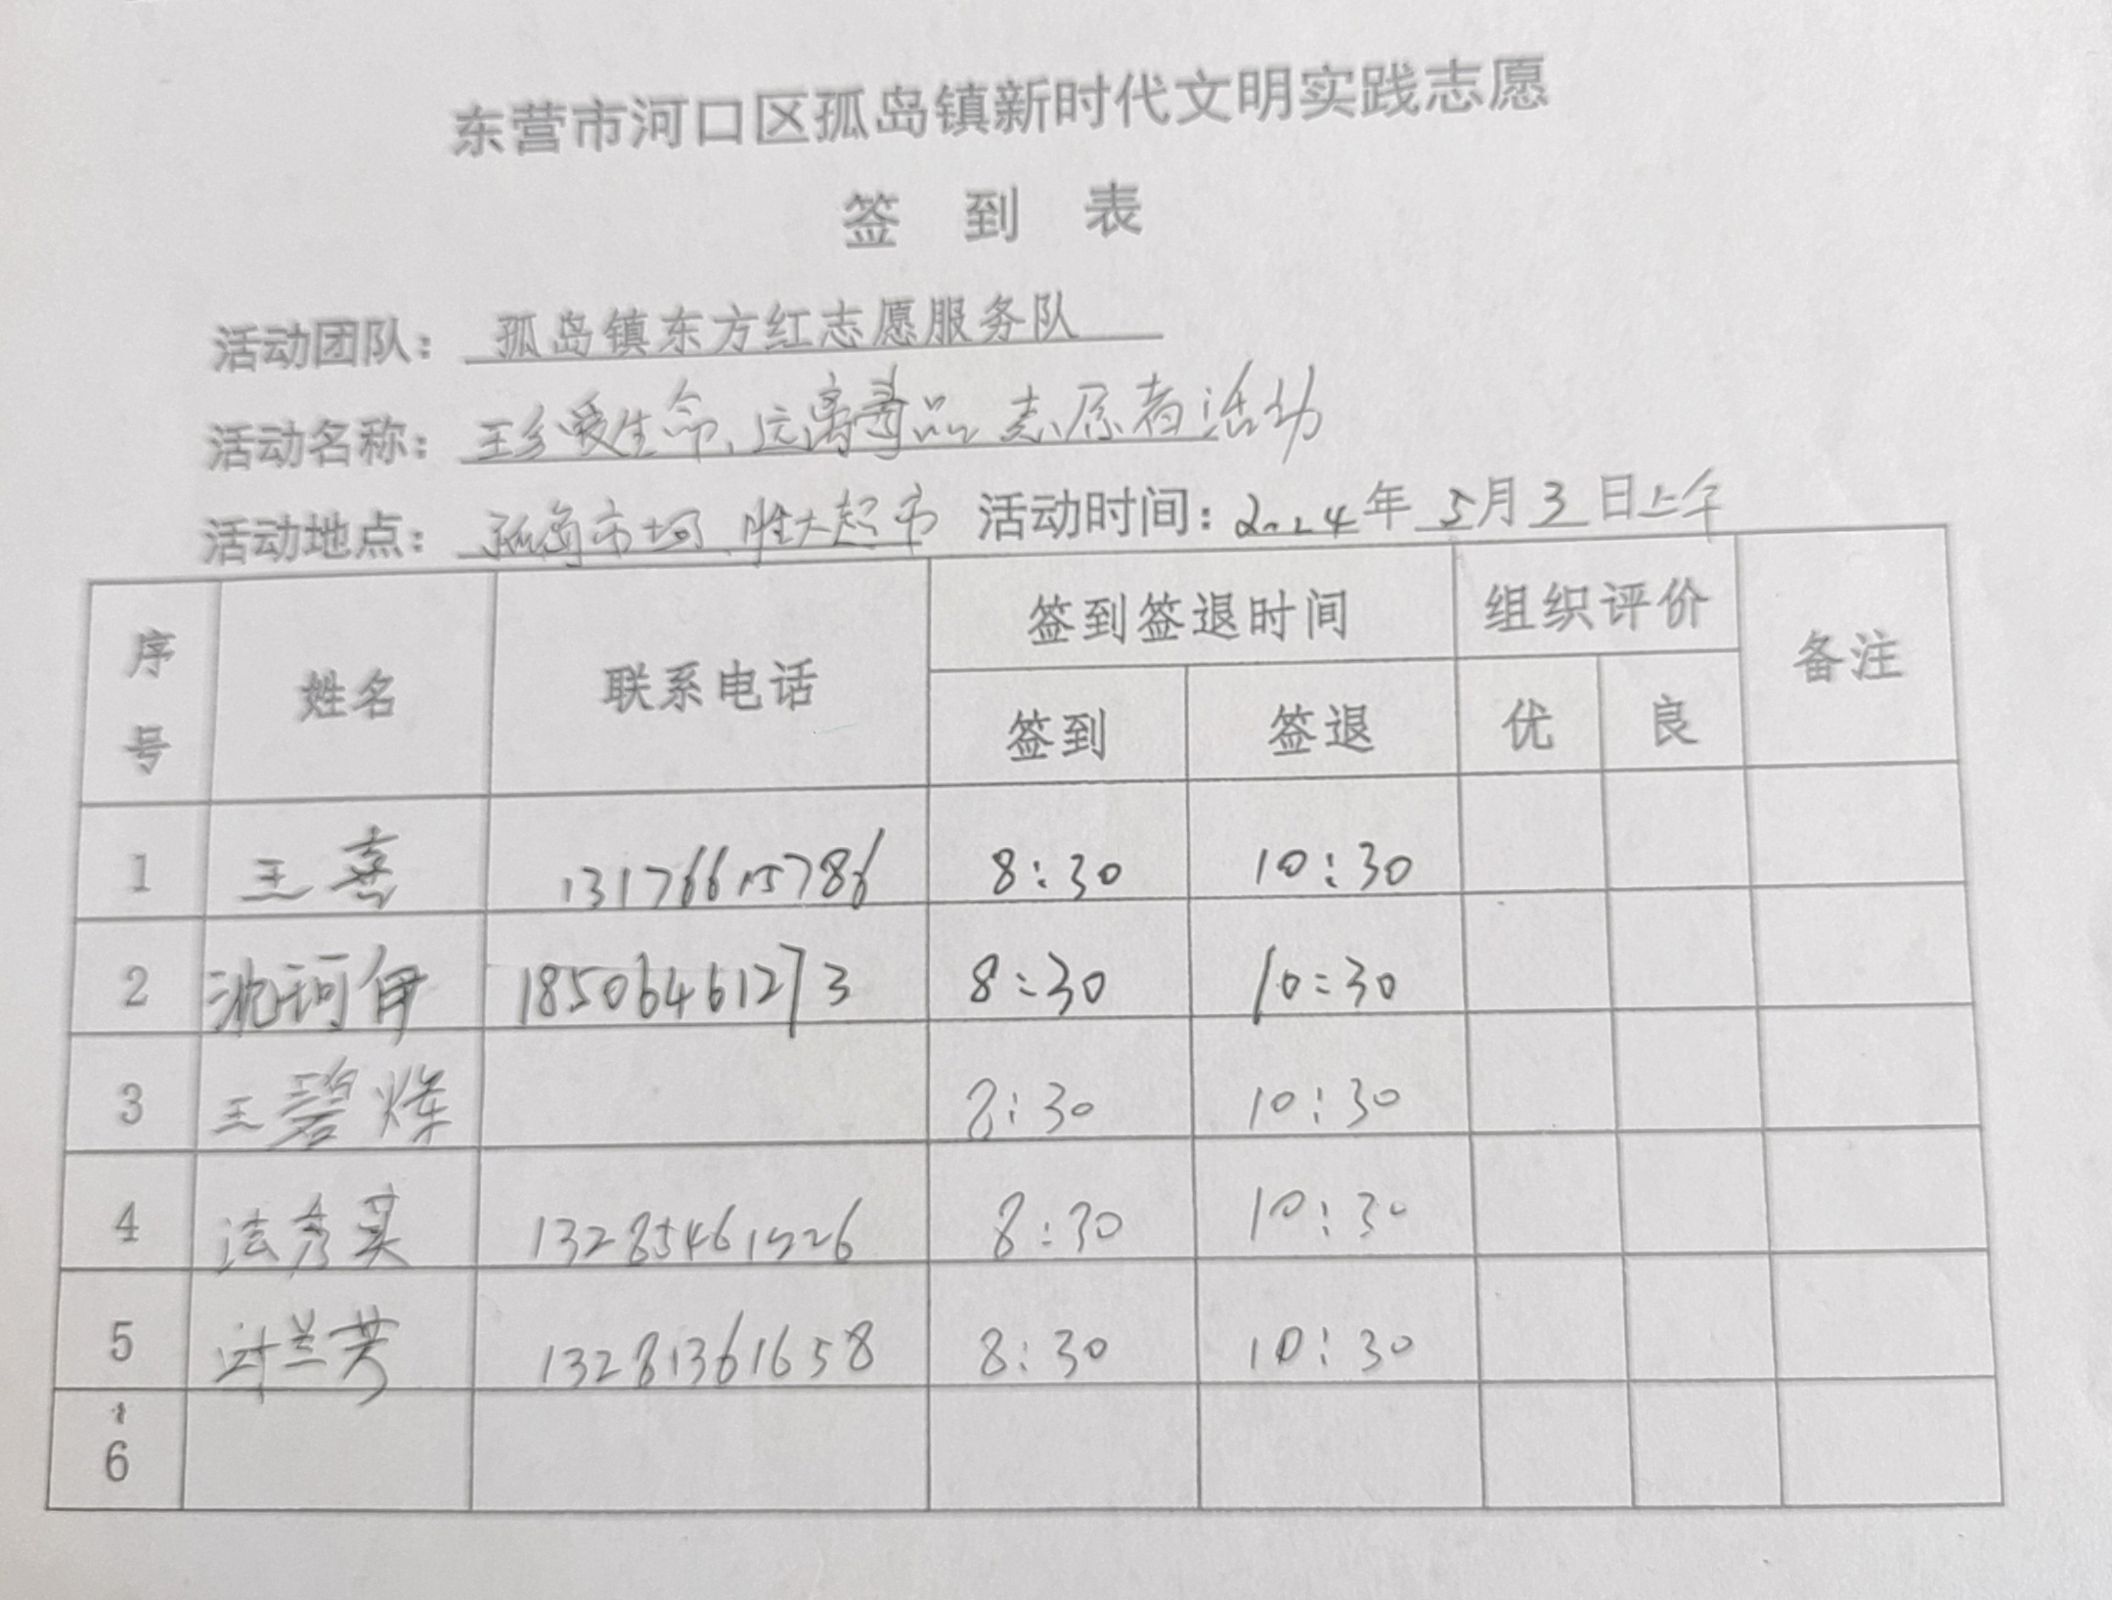 东营市河口区孤岛镇新时代文明实践志愿
签 到 表
活动团队：孤岛镇东方红志愿服务队
活动名称：珍爱生命、远离毒品志愿者活动
活动地点：孤岛市场、胜大超市 活动时间：2024年5月3日上午
序号 姓名 联系电话 签到签退时间 组织评价 备注
签到 签退 优 良
1 王喜 13176615786 8:30 10:30
2 沈珂伊 18506461273 8:30 10:30
3 王碧烁 8:30 10:30
4 法秀英 8:30 10:30
5 兰芳 13281361658 8:30 10:30
6